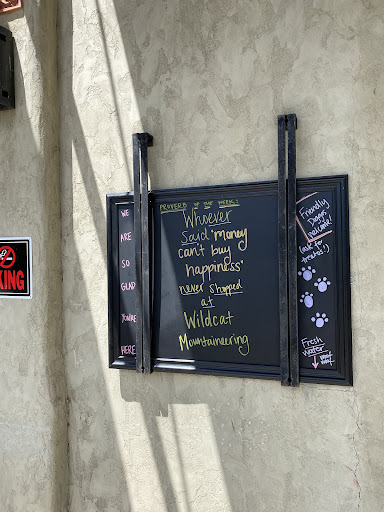 KING
WE
ARE
SO
GLAD
YOU'RE
HERE
PROVERB OF THE WEEK:
Whoever
said "money
can't buy
happiness"
never shopped
at
Wildcat
Mountaineering
Friendly
Doggs
welcome!
(ask for
treats!)
Fresh
water